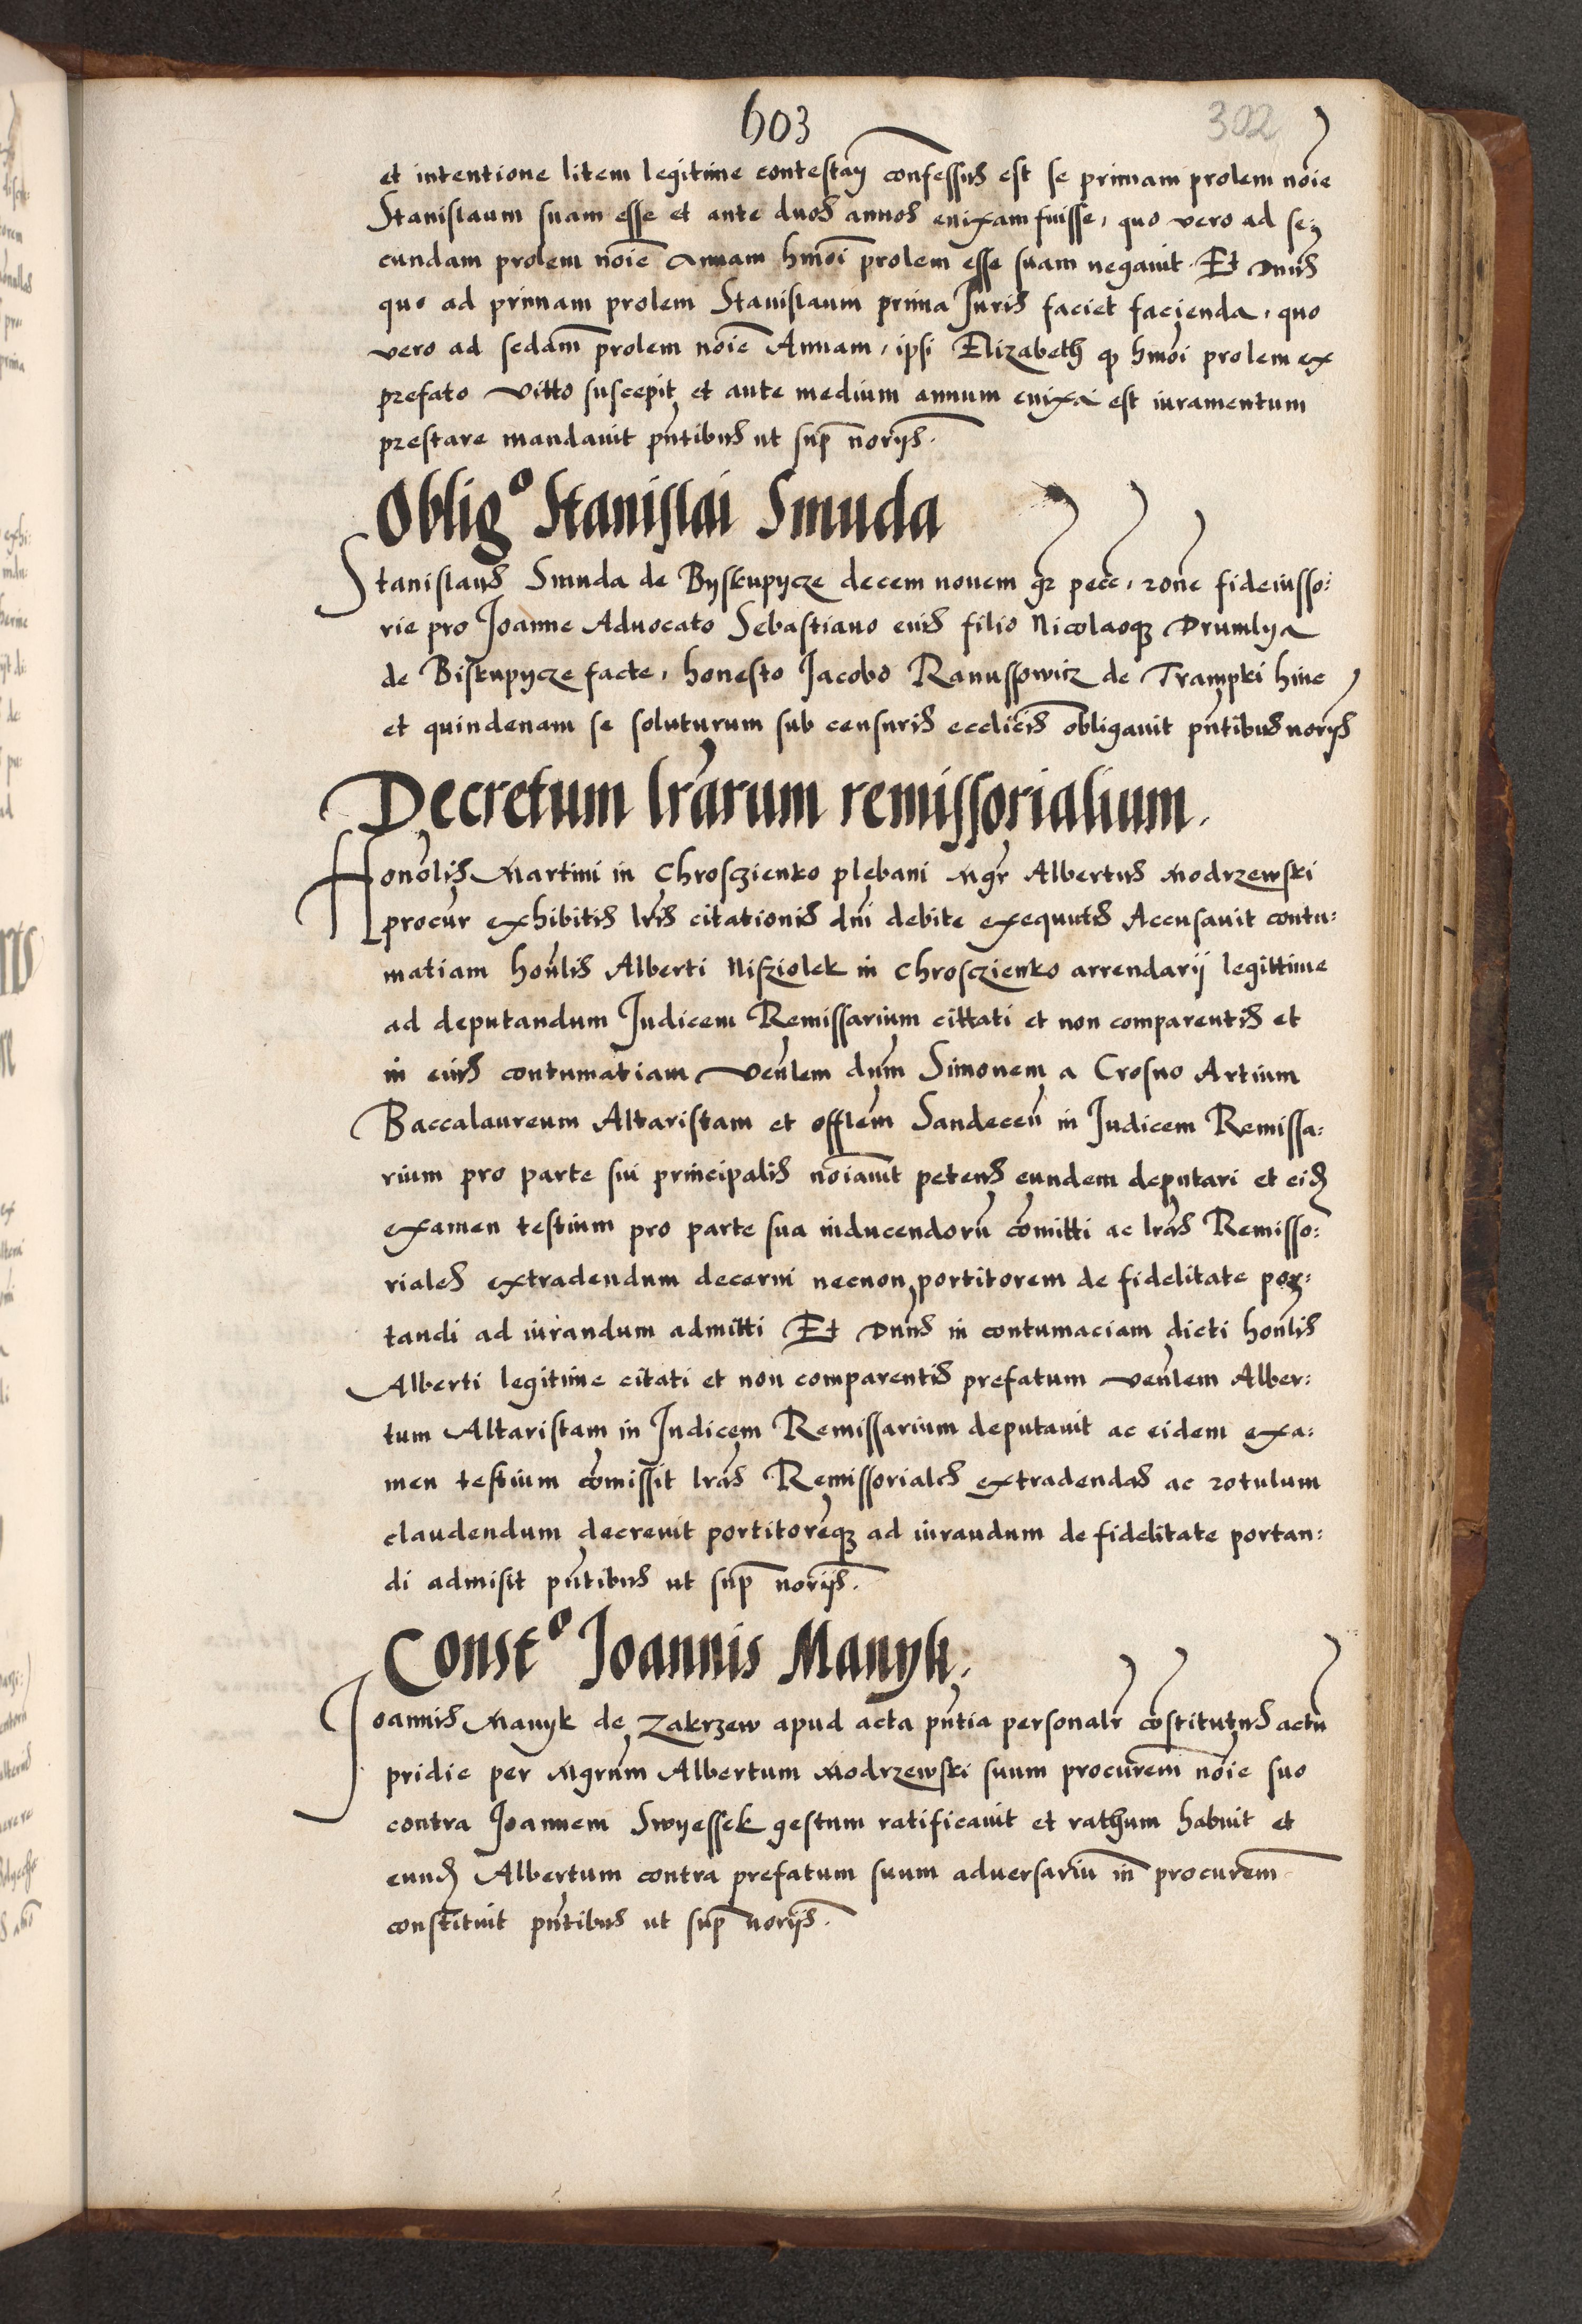 603
302
et intentione litem legitime contestan confessus est se primam prolem noie
Stanislaum suam esse et ante duos annos enixam fuisse, quo vero ad se:
cundam prolem noie Annam hmoi prolem esse suam negavit. Et Dnus
quo ad primam prolem Stanislaum prima Juris faciet facienda, quo
vero ad sedam prolem noie Annam, ipsi Elizabeth q hmoi prolem ex
prefato Vitto suscepit et ante medium annum enixa est iuramentum
prestare mandavit pntibus ut sup noriis.
Obligº Stanislai Smuda
Stanislaus Smuda de Byskupycze decem novem gr pecc, rone fideiusso:
rie pro Joanne Advocato Sebastiano eius filio Nicolaoq Drumlya
de Biskupycze facte, honesto Jacobo Ranussowicz de Trampki hinc
et quindenam se soluturum sub censuris ecclicis obligavit pntibus noriis
Decretum lrarum remissorialium.
Honolis Martini in Chrosczienko plebani Mgr Albertus Modrzewski
procur exhibitis lris citationis dni debite exequutis Accusavit contu:
matiam honlis Alberti Nisziolek in Chrosczienko arrendarij legittime
ad deputandum Judicem Remissarium cittati et non comparentis et
in eius contumatiam venlem dum Simonem a Crosno Artium
Baccalaureum Altaristam et offlem Sandecen in Judicem Remissa:
rium pro parte sui principalis noiavit petens eundem deputari et eid
examen testium pro parte sua inducendoru comitti ac lras Remisso:
riales extradendum decerni necnon portitorem de fidelitate por:
tandi ad iurandum admitti Et Dnus in contumaciam dicti honlis
Alberti legitime citati et non comparentis prefatum venlem Alber:
tum Altaristam in Judicem Remissarium deputavit ac eidem exa:
men testium comissit lras Remissoriales extradendas ac rotulum
claudendum decrevit portitoreq ad iurandum de fidelitate portan:
di admisit pntibus ut sup noriis.
Constº Joannis Manyk.
Joannis Manyk de Zakrzew apud acta pntia personalr costitutus actu
pridie per Mgrum Albertum Modrzewski suum procurem noie suo
contra Joannem Swyessek gestum ratificavit et rathum habuit et
eund Albertum contra prefatum suum adversariu in procurem
constituit pntibus ut sup noriis.